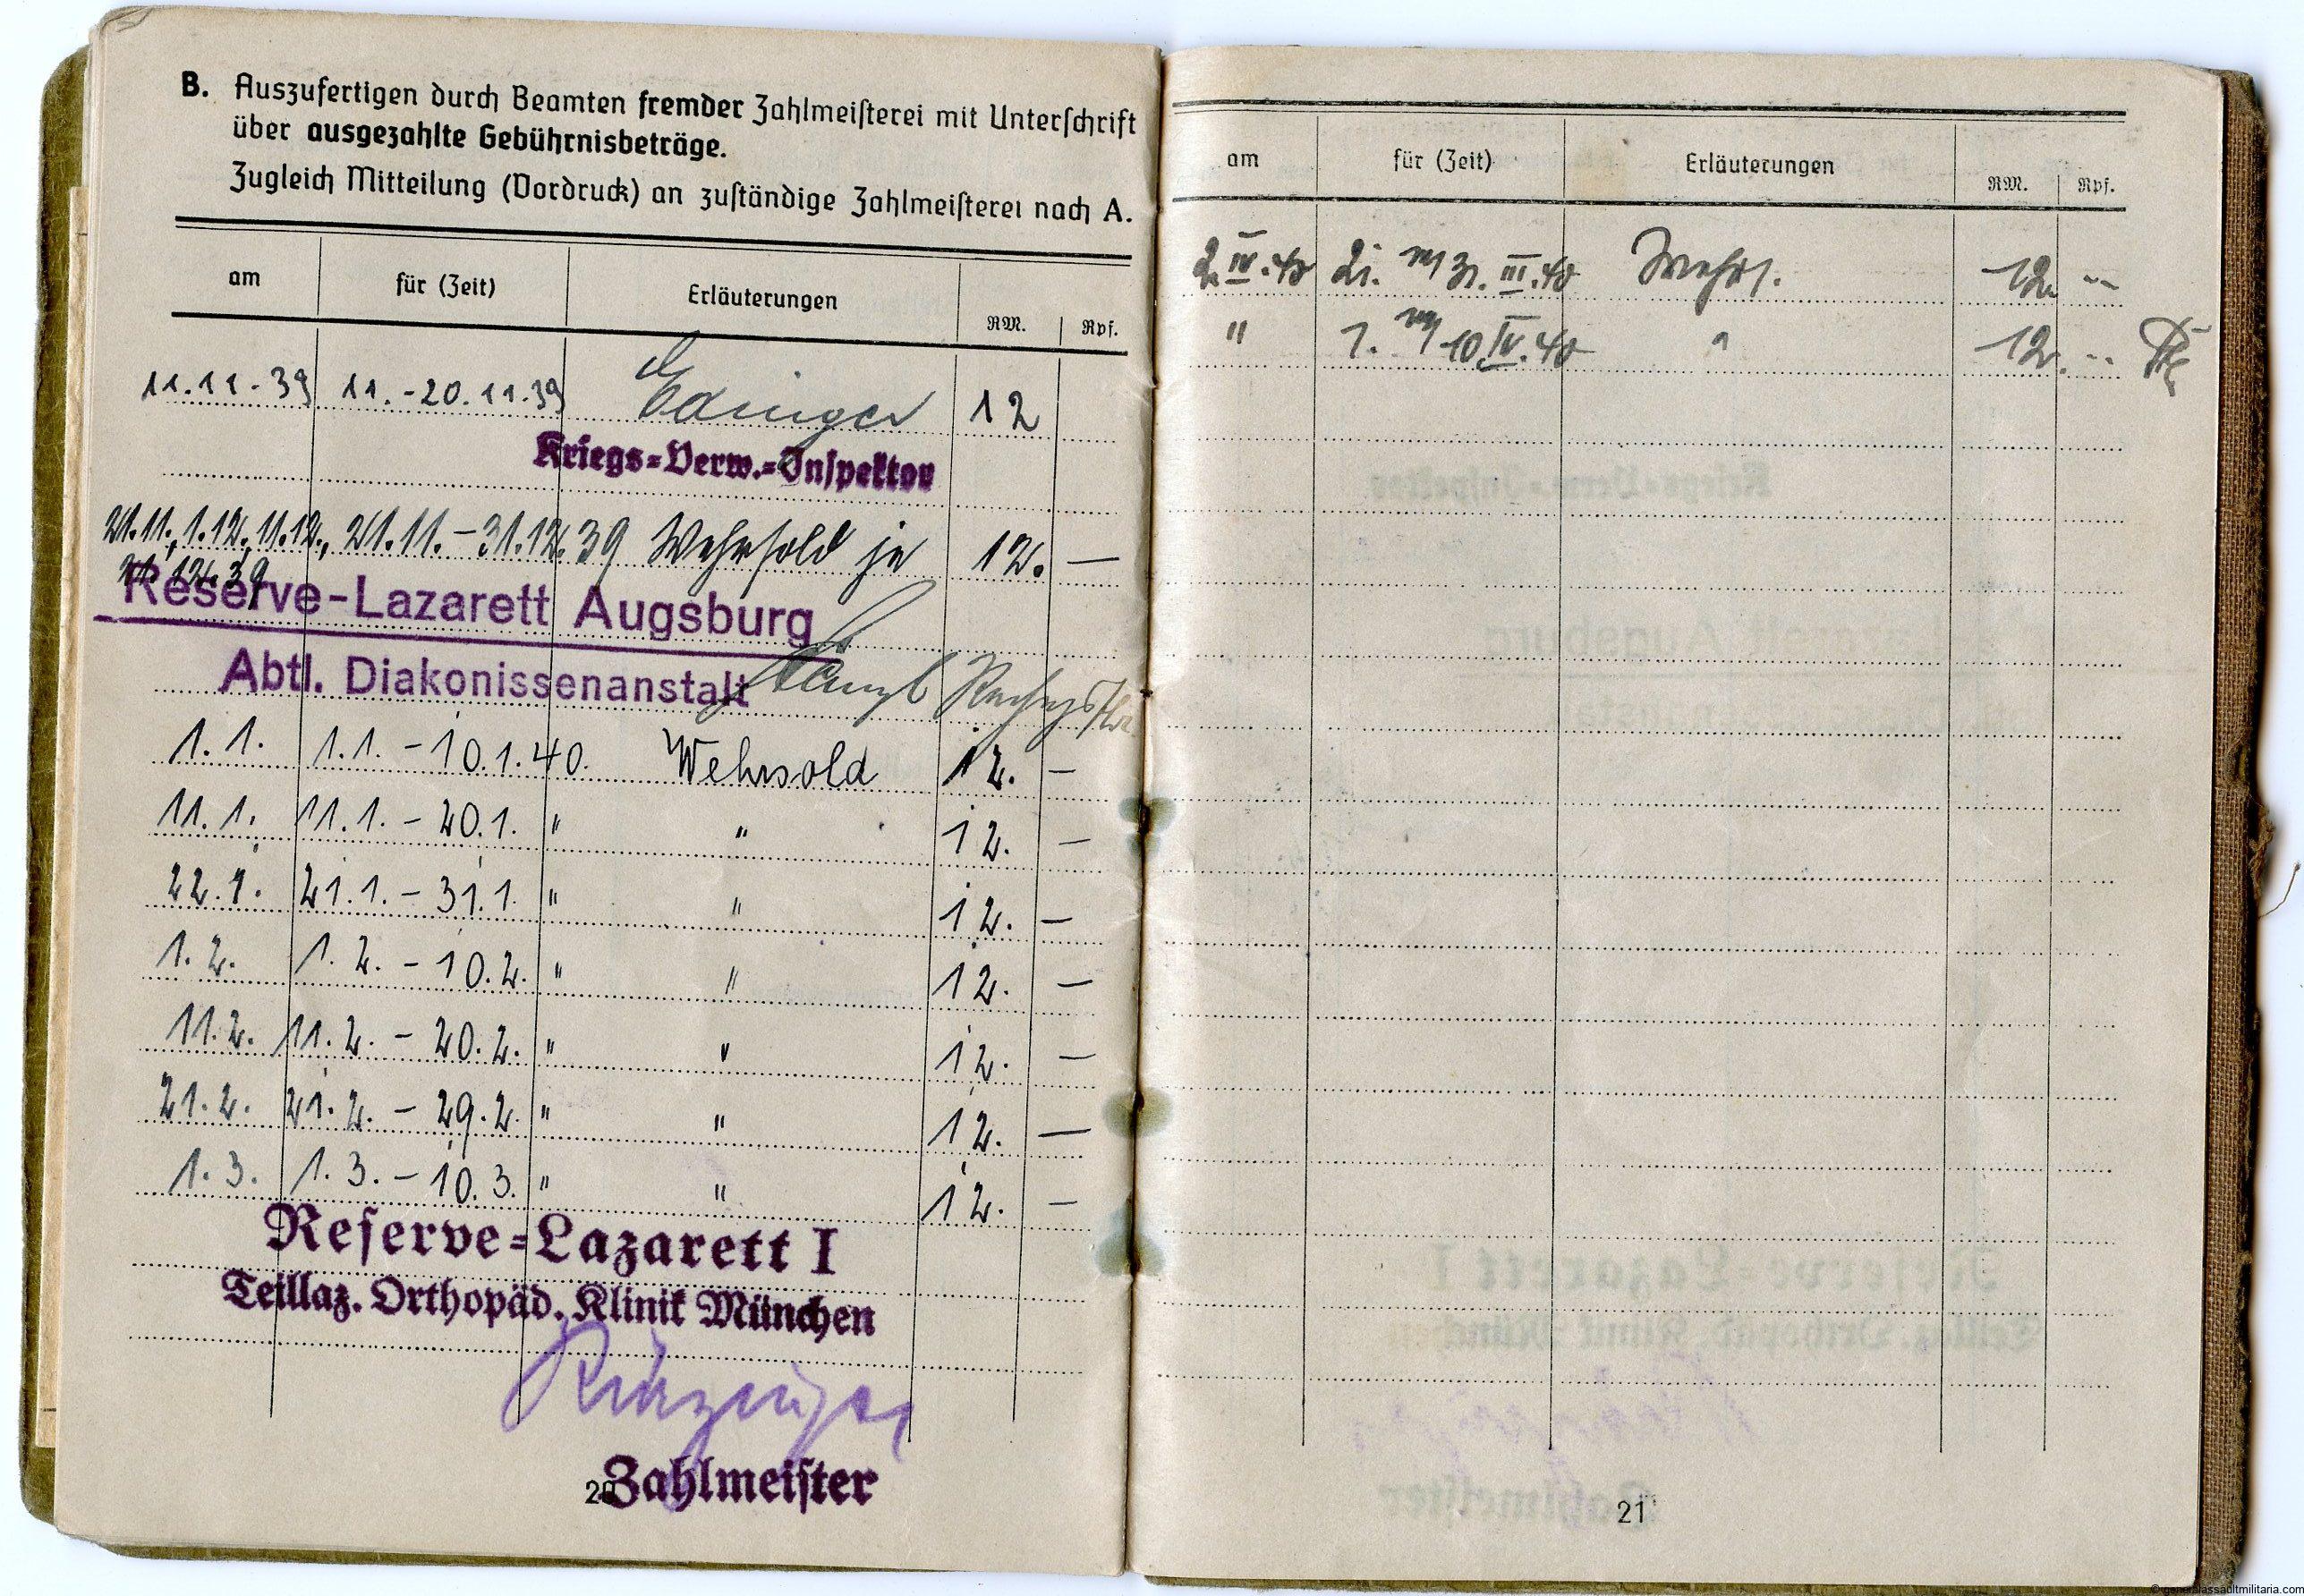 B. Auszufertigen durch Beamten fremder Zahlmeisterei mit Unterschrift
über ausgezahlte Gebührnisbeträge.
Zugleich Mitteilung (Vordruck) an zuständige Zahlmeisterei nach A.
am für (Zeit) Erläuterungen RM. Rpf.
11.11.-39 11.-20.11.39 Edinger 12
Kriegs=Verw.=Inspektor
21.11., 1.12., 11.12., 21.11.-31.12.39 Wehrsold je 12. —
21.12.39
Reserve-Lazarett Augsburg
Abtl. Diakonissenanstalt
1.1. 1.1.-10.1.40. Wehrsold 12. —
11.1. 11.1.-20.1. " " 12. —
22.1. 21.1.-31.1. " " 12. —
1.2. 1.2.-10.2. " " 12. —
11.2. 11.2.-20.2. " " 12. —
21.2. 21.2.-29.2. " " 12. —
1.3. 1.3.-10.3. " " 12. —
Reserve=Lazarett I
Teillaz. Orthopäd. Klinik München
Zahlmeister
20
am für (Zeit) Erläuterungen RM. Rpf.
2.IV.40 21. 31.III.40 Wehrs. 12. --
" 1. 10.IV.40 " 12. --
21
© generalassaultmilitaria.com